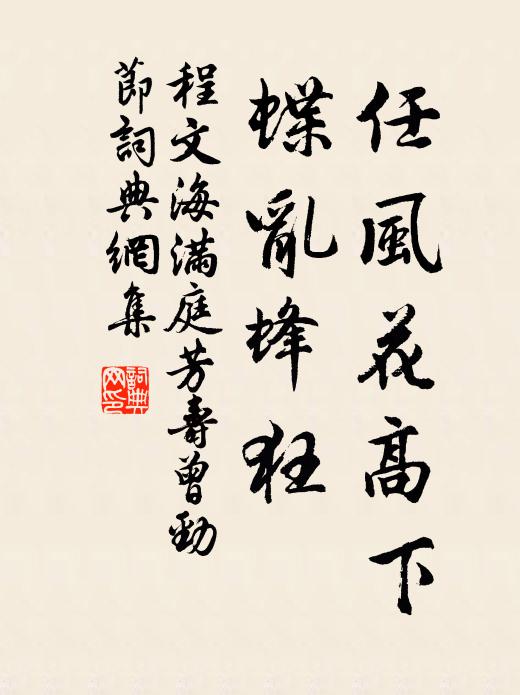 任風花高下
蝶亂蜂狂
程文海滿庭芳壽曾勁
節詞典網集
詞典
网印